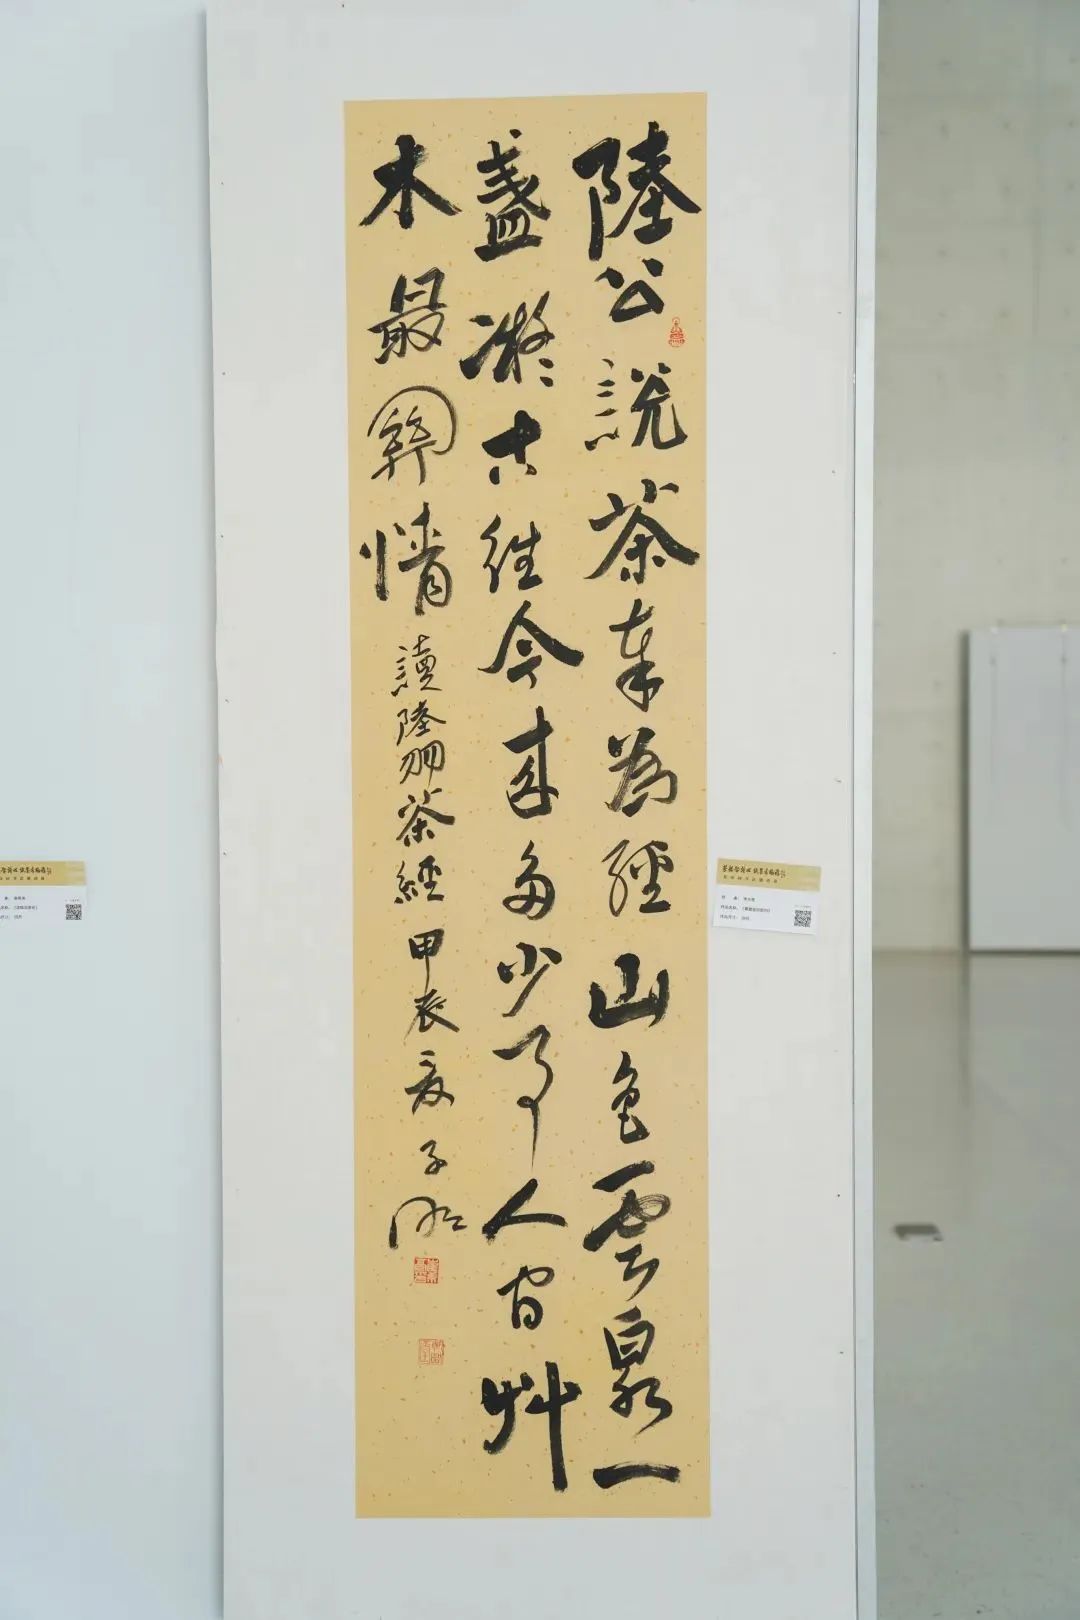 陸公說茶奉為經山色雲泉一
盞凝古往今來多少事人間艸
木最關情
讀陸羽茶經甲辰夏子